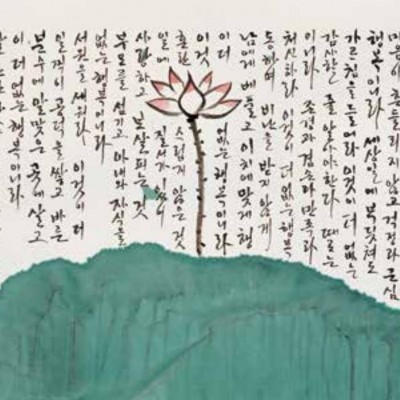 마음이 흔들리지 않고 걱정과 근심
행복이니라 세상일에 부딪쳐도
가르침을 들어라 이것이 더 없는
감사한 줄 알아야 한다 때로는
이니라 존경과 겸손과 만족과
처신하라 이것이 더 없는 행복
동하며 비난을 받지 않게
남에게 베풀고 이치에 맞게 행
이 더 없는 행복이니라
이것
혼란 스럽지 않은 것
일에 질서가 있어
사랑하고 보살피는 것
부모를 섬기고 아내와 자식을
없는 행복이니라
서원을 세워라 이것이 더
일찍이 공덕을 쌓고 바른
분수에 알맞은 곳에 살고
이 더 없는 행복이니라